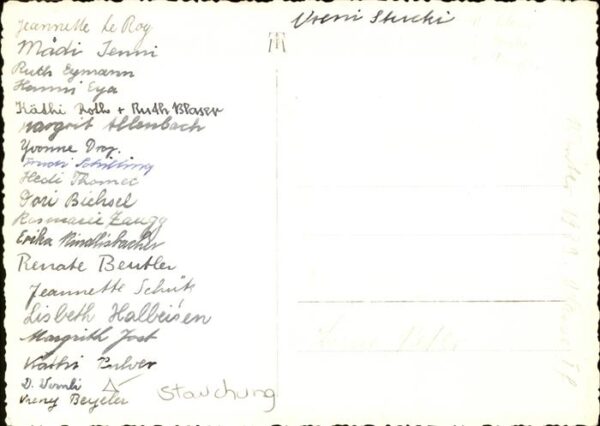 Jeannette Le Roy
Mädi Jenni
Ruth Eymann
Hanni Eya
Käthi Roth + Ruth Blaser
Margrit Allenbach
Yvonne Droz.
Schilling
Hedi Thomet
Dori Bichsel
Rosmarie Zaugg
Erika Rindlisbacher
Renate Beutler
Jeannette Schütz
Lisbeth Halbeisen
Margrith Jost
Käthi Pulver
D. Wernli
Vreny Beyeler
Stauchung
Vreni Stucki